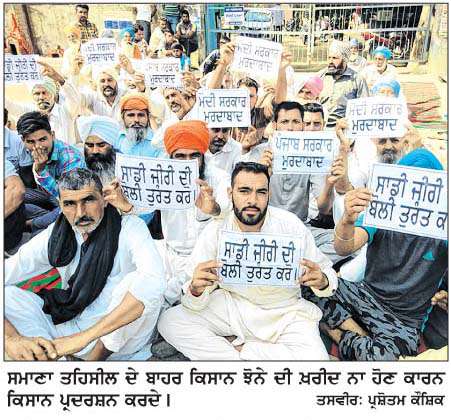 ਮੋਦੀ ਸਰਕਾਰ
ਮੁਰਦਾਬਾਦ
ਮੋਦੀ ਸਰਕਾਰ
ਮੁਰਦਾਬਾਦ
ਪੰਜਾਬ ਸਰਕਾਰ
ਮੁਰਦਾਬਾਦ
ਮੋਦੀ ਸਰਕਾਰ
ਮੁਰਦਾਬਾਦ
ਸਾਡੀ ਜੀਰੀ ਦੀ
ਬੋਲੀ ਤੁਰਤ ਕਰੋ
ਸਾਡੀ ਜੀਰੀ ਦੀ
ਬੋਲੀ ਤੁਰਤ ਕਰੋ
ਸਾਡੀ ਜੀਰੀ ਦੀ
ਬੋਲੀ ਤੁਰਤ ਕਰੋ।
ਸਮਾਣਾ ਤਹਿਸੀਲ ਦੇ ਬਾਹਰ ਕਿਸਾਨ ਝੋਨੇ ਦੀ ਖ਼ਰੀਦ ਨਾ ਹੋਣ ਕਾਰਨ
ਕਿਸਾਨ ਪ੍ਰਦਰਸ਼ਨ ਕਰਦੇ। ਤਸਵੀਰ: ਪ੍ਰਸ਼ੋਤਮ ਕੌਸ਼ਿਕ